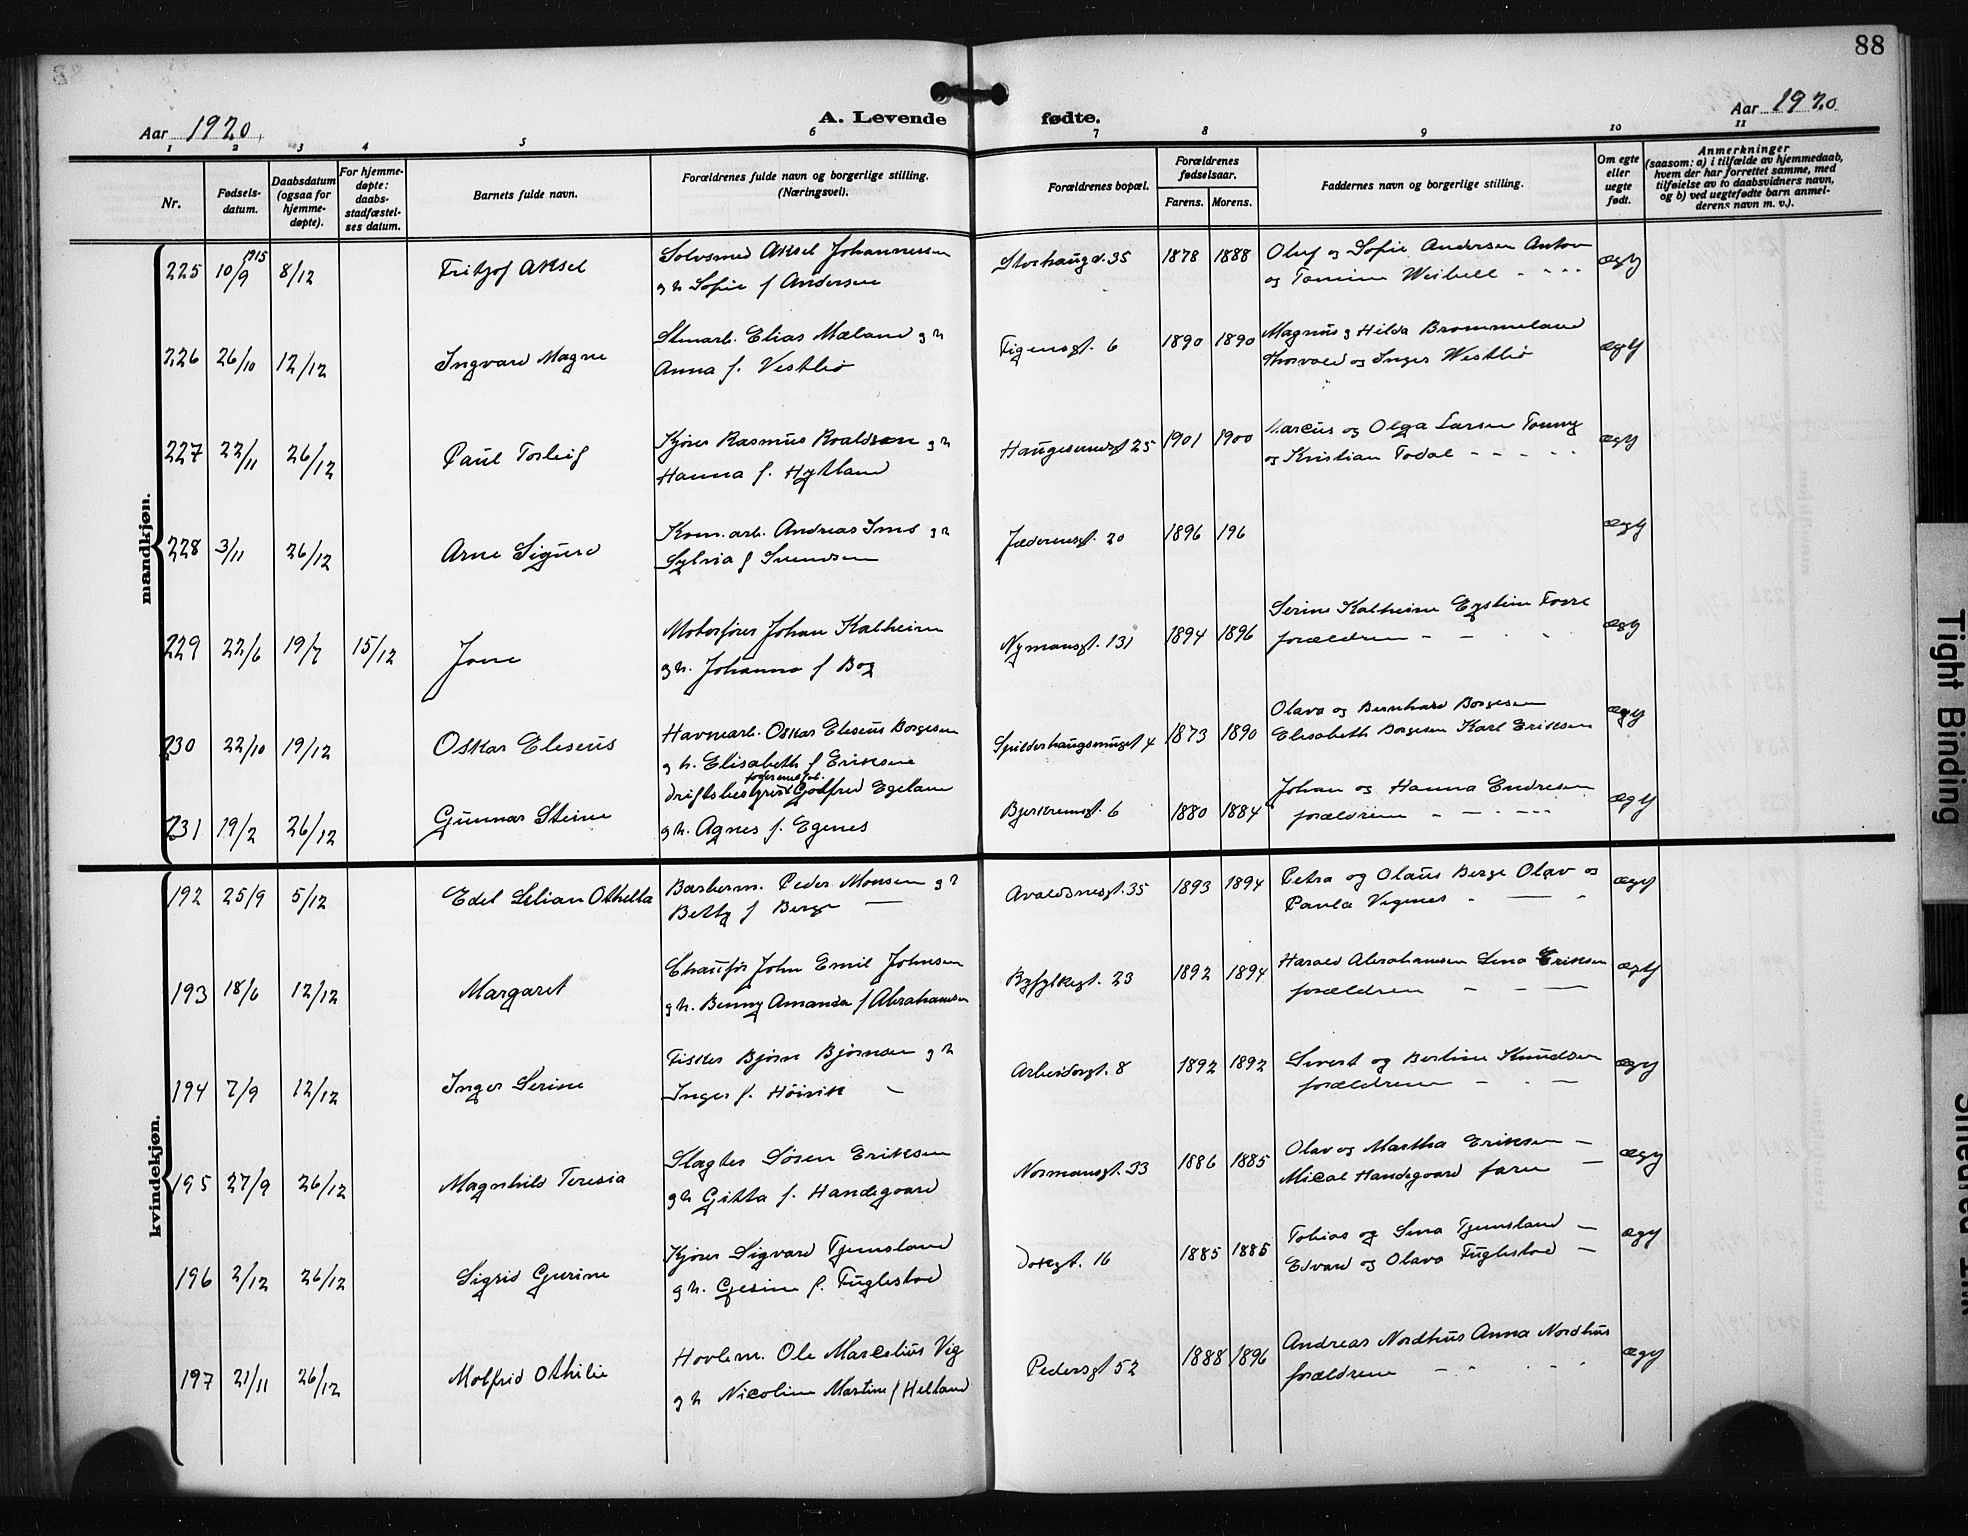 88
Aar 1920
A. Levende fødte.
Aar 1920
1 2 3 4 5 6 7 8 9 10 11
Nr.
Fødsels-
datum.
Daabsdatum
(ogsaa for
hjemme-
døpte).
For hjemme-
døpte:
daabs-
stadfæstel-
ses datum.
Barnets fulde navn.
Forældrenes fulde navn og borgerlige stilling.
(Næringsvei).
Forældrenes bopæl.
Forældrenes
fødselsaar.
Farens. Morens.
Faddernes navn og borgerlige stilling.
Om egte
eller
uegte
født.
Anmerkninger
(saasom: a) i tilfælde av hjemmedaab,
hvem der har forrettet samme, med
tilføielse av to daabsvidners navn,
og b) ved uegtefødte barn anmel-
derens navn m. v.).
mandkjøn.
225 10/9 1915 8/12 Fritjof Aksel
Sølvsmed Aksel Johannessen
g h Sofie f Andersen
Storhaugv. 35 1878 1888
Oluf og Sofie Andersen Anton
og Tomine Weibell - - - -
ægt
226 26/10 12/12 Ingvard Magne
Stenarb. Elias Mæland g h
Anna f. Vestbø
6 1890 1890
Magnus g Hilda Brommeland
Thorvald og Inger Westbø
ægt
227 22/11 26/12 Paul Torleif
Kjører Rasmus Roaldsen g h
Hanna f. Hytland
Haugesundsgt 25 1901 1900
Marcus og Olga Larsen Tonny
og Kristian Todal - - - - -
ægt
228 3/11 26/12 Arne Sigurd
Kom. arb. Andreas Ims g h
Sylvia f Svendsen
Jæderensgt. 20 1896 196
ægt
229 22/6 19/7 15/12 Jone
Motorfører Johan Kalheim
g h. Johanna f Bog
Nymansgt. 131 1894 1896
Serine Kalheim Eystein Torre
forældrene - - - -
ægt
230 22/10 19/12 Oskar Eleseus
Havnearb. Oskar Eleseus Børgesen
g h. Elisabeth f Eriksen
Spilderhaugsmuget 4 1873 1890
Olava og Bernhard Børgesen
Elisabeth Børgesen Karl Eriksen
ægt
231 19/2 26/12 Gunnar Steine
Driftsbestyrer Godtfred Egeland
g h. Agnes f. Egenes
Bjerkreimsgt. 6 1880 1884
Johan og Hanna Endresen
forældrene - - - - - -
ægt
kvindekjøn.
192 25/9 5/12 Edel Lilian Othella
Barberm. Peder Monsen g h
Betty f Berge —
Avaldsnesgt. 35 1893 1894
Petra og Olaus Berge Olav og
Paula Vignes - — -
ægt
193 18/6 12/12 Margaret
Chauffør John Emil Johnsen
g h. Benny Amanda f Abrahamsen
Ryfylkegt. 23 1892 1894
Harald Abrahamsen Lina Eriksen
forældrene - - —
ægt
194 7/9 12/12 Inger Serine
Fisker Bjørn Bjørnsen g h
Inger f. Høivik -
Arbeidergt. 8 1892 1892
Sivert og Bertine Knudsen
forældrene - - —
ægt
195 27/9 26/12 Magnhild Teresia
Slagter Søren Eriksen
g h Gitta f. Handegaard
Normansgt. 33 1886 1885
Olav og Martha Eriksen —
Mical Handegaard faren —
ægt
196 2/12 26/12 Sigrid Gurine
Kjører Sigvard Tjemsland
g h. Gesine f. Fuglestad
Dokgt. 16 1885 1885
Tobias og Lina Tjemsland —
Edvard og Olava Fuglestad —
ægt
197 21/11 26/12 Molfrid Othilie
Hovlem. Ole Marcelius Vig
g h Nicoline Martine f Helland
Pedersgt 52 1888 1896
Andreas Nordhus Anna Nordhus
forældrene - - - - -
ægt
Tight Binding
Smeared Ink